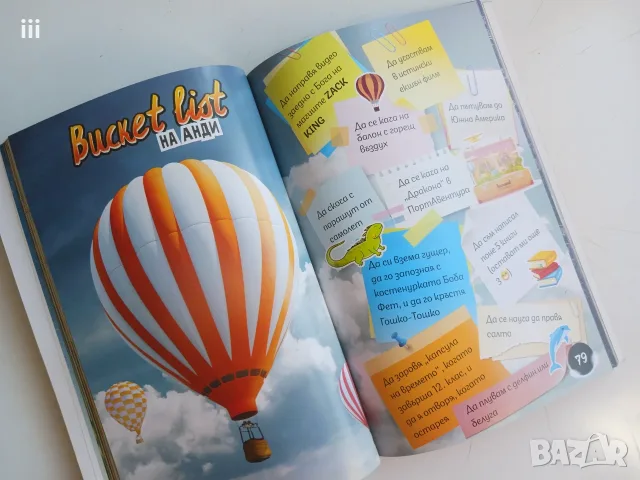 iii
Bucket list
НА АНДИ
Да направя видео
заедно с Бога на
магиите ZACK
KING
Да участвам
в истински
екшън филм
Да се кача на
балон с горещ
въздух
Да пътувам до
Южна Америка
Да скоча с
парашут от
самолет
Да се кача на
„Дракона" в
ПортАвентура
Да съм написал
поне 5 книги
(остават ми още
3
Да си взема гущер,
да го запозная с
костенурката Боба
Фет, и да го кръстя
Гошко-Тошко
Да се науча да правя
салто
Да заровя „капсула
на времето", когато
завърша 12. клас, и
да я отворя, когато
остарея
Да плувам с делфин или
белуга
79
BAZAR
bg